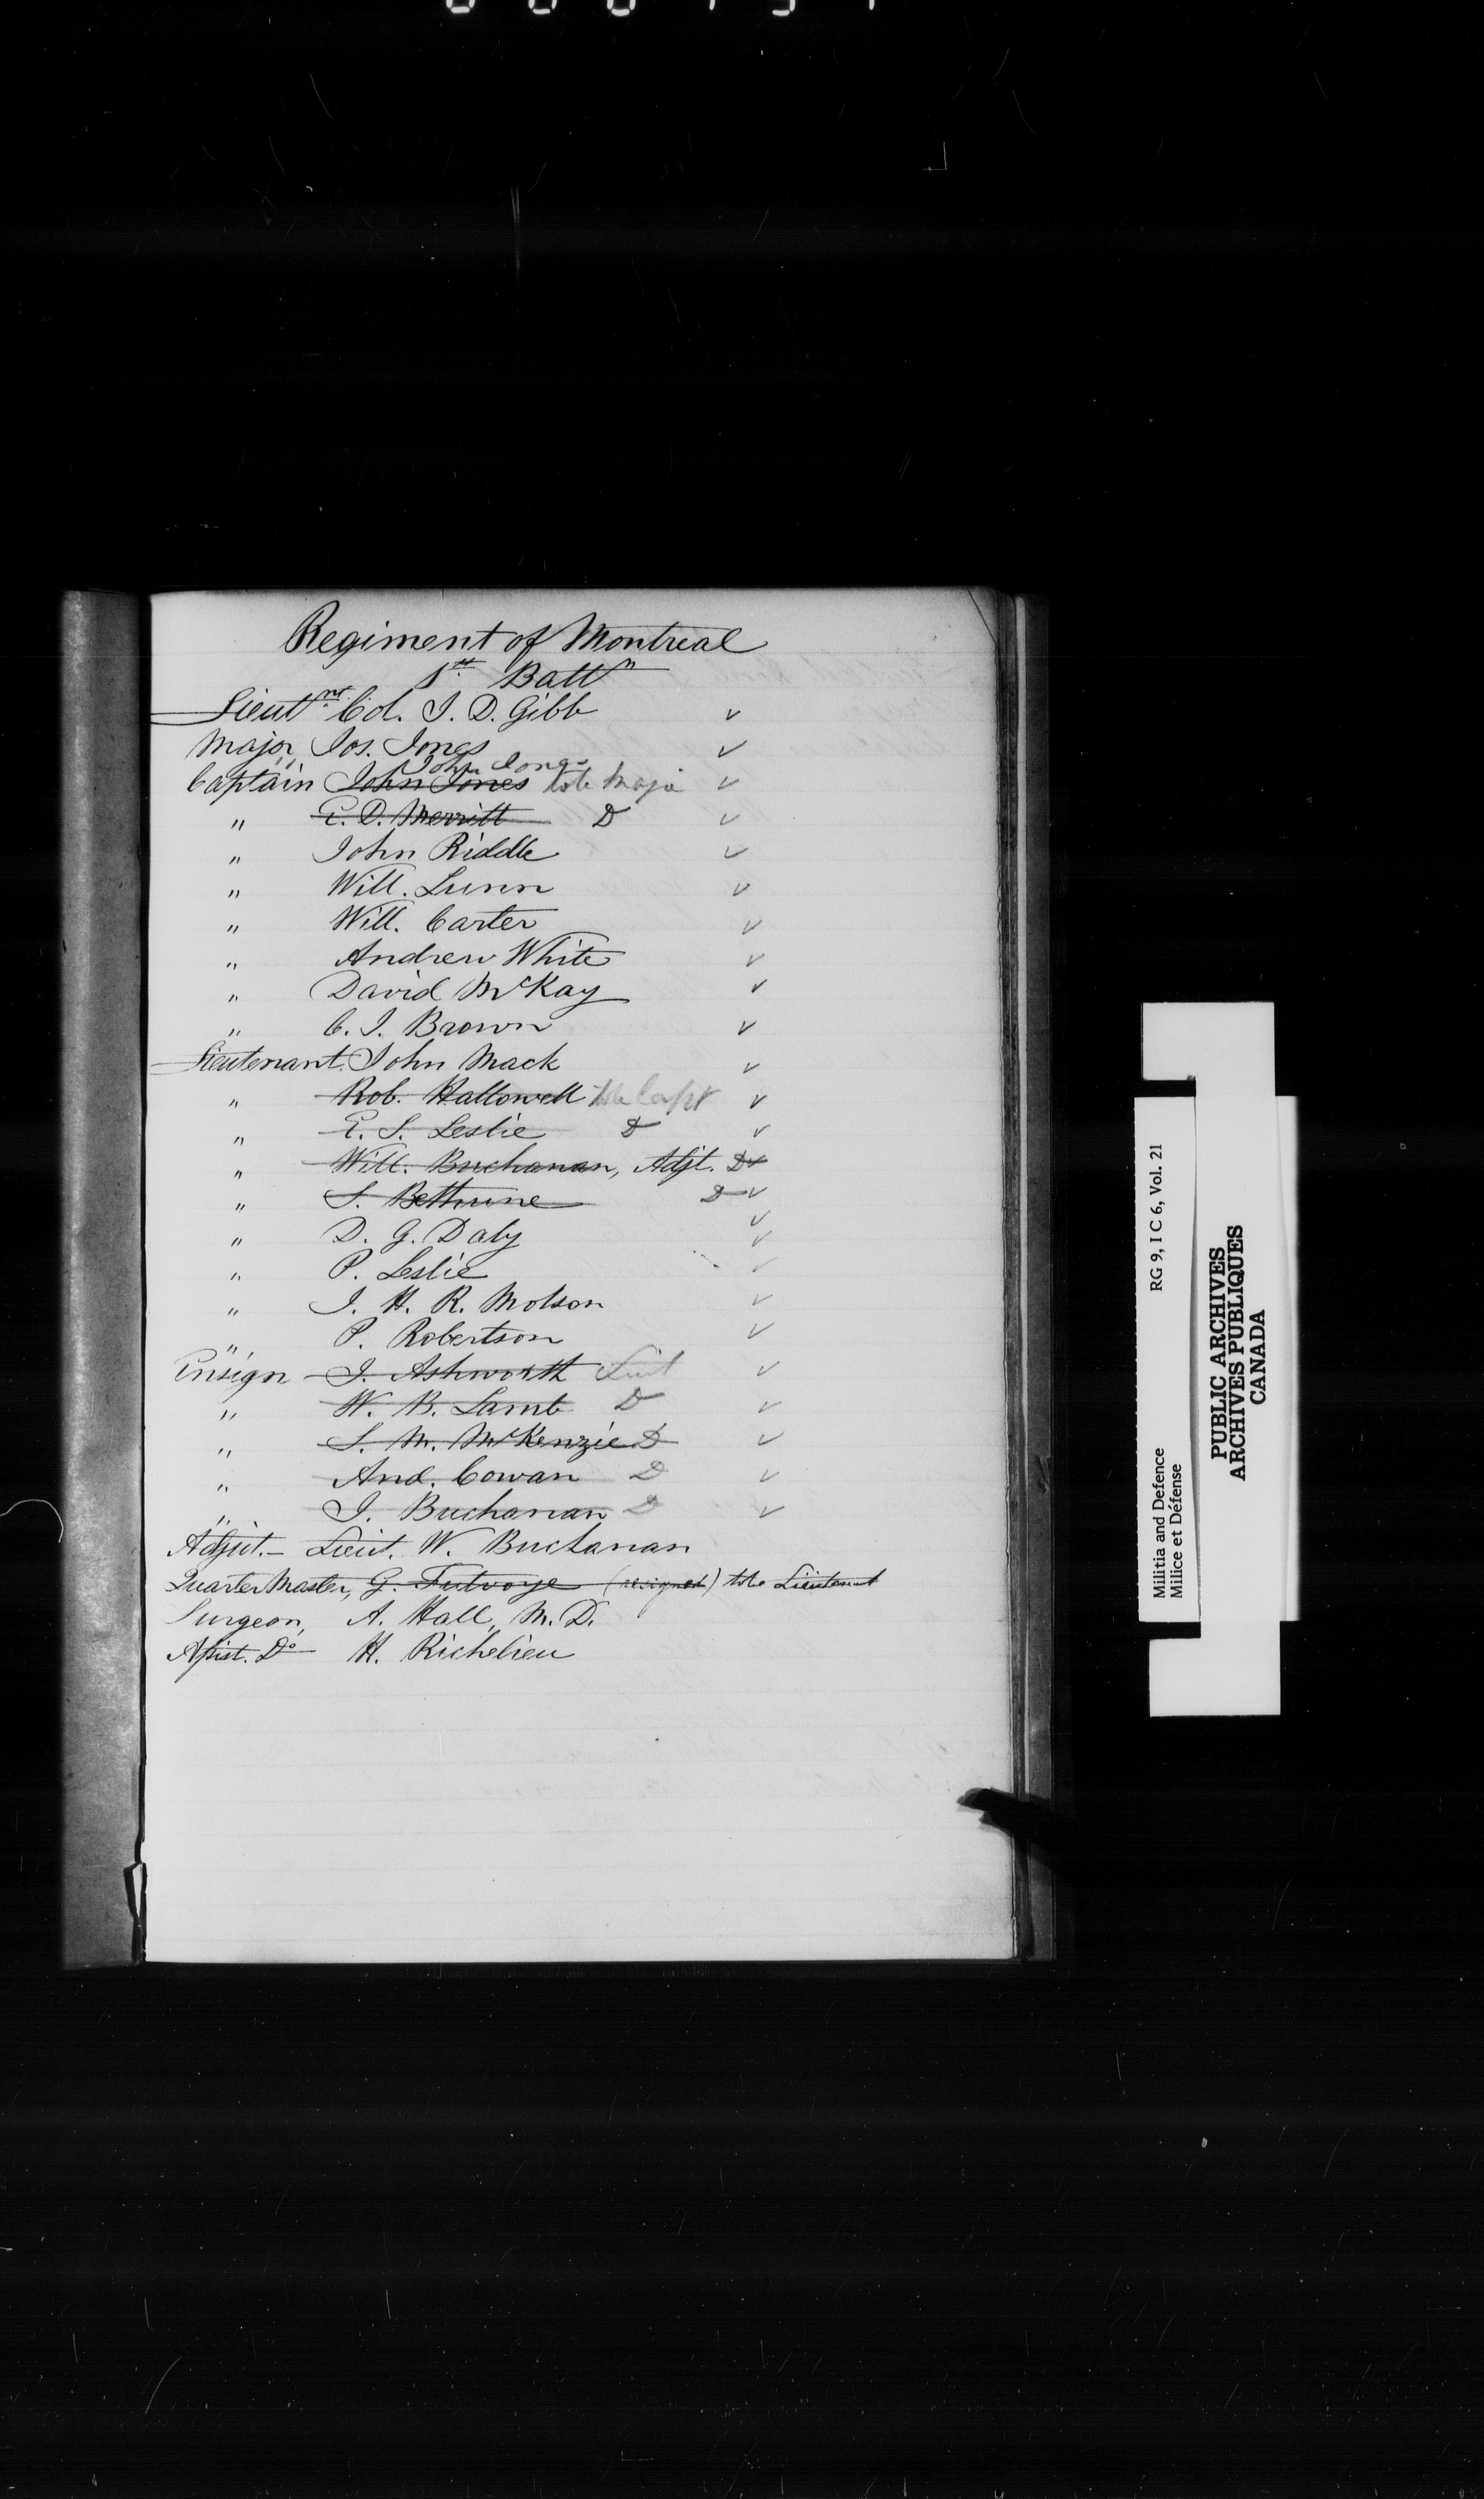 Regiment of Montreal
1st Battn
Lieutnt Col. J. D. Gibb
Major Jos. Jones
John Jones
Captain John Jones to be Major
" E. D. Merritt D
" John Riddle
" Will. Lunn
" Will. Carter
" Andrew White
" David McKay
" C. J. Brown
Lieutenant John Mack
" Rob. Hallowell to be Capt
" E. S. Leslie D
" Will. Buchanan, Adjt. D
" S. Bethune D
" D. G. Daly
" P. Leslie
" J. H. R. Molson
" P. Robertson
Ensign J. Ashworth Lieut
" W. B. Lamb D
" S. M. McKenzie D
" And. Cowan D
" J. Buchanan D
Adjut. - Lieut. W. Buchanan
Quarter Master, G. Futvoye (resigned) to be Lieutenant
Surgeon, A. Hall, M. D.
Assist. Do H. Richelieu
Militia and Defence RG 9, I C 6, Vol. 21
Milice et Défense
PUBLIC ARCHIVES
ARCHIVES PUBLIQUES
CANADA